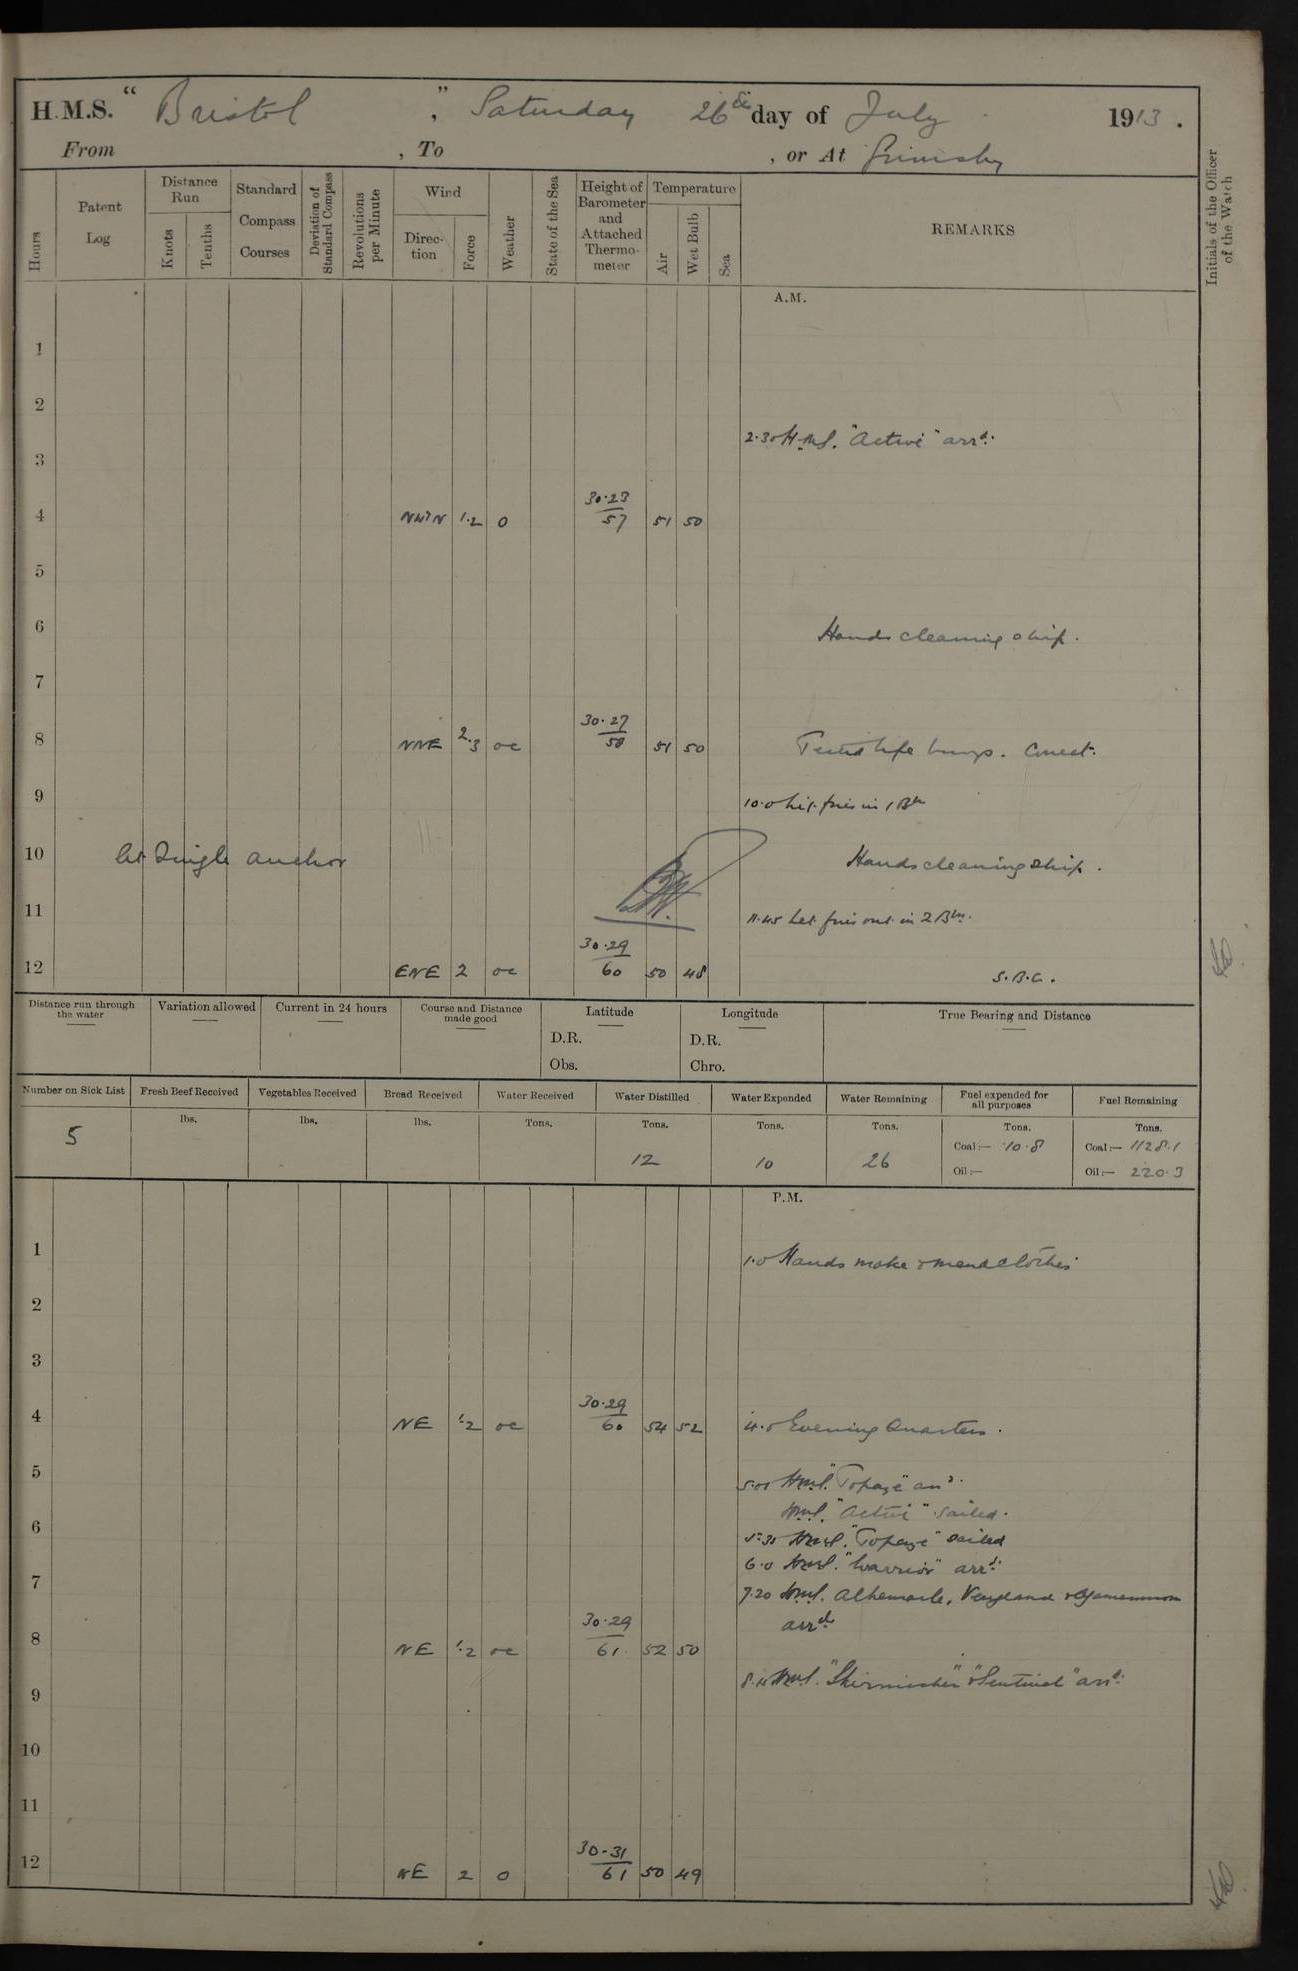 H.M.S. "Bristol", Saturday 26th day of July 1913.
From , To , or At Grimsby
Hours
Patent Log
Distance Run
Knots
Tenths
Standard Compass Courses
Deviation of Standard Compass
Revolutions per Minute
Wind
Direction
Force
Weather
State of the Sea
Height of Barometer and Attached Thermometer
Temperature
Air
Wet Bulb
Sea
REMARKS
Initials of the Officer of the Watch
A.M.
1
2
2.30 H.M.S. "Active" arrd.
3
4 NW'N 1.2 o 30.23/57 51 50
5
6 Hands cleaning ship.
7
8 NNE 2.3 oc 30.27/58 51 50 Tested life buoys. Correct.
9
10.0 Lit fires in 1 Blr
10 At Single anchor Hands cleaning ship.
11
11.45 Let fires out in 2 Blrs.
12 ENE 2 oc 30.29/60 50 48 S.B.C.
Distance run through the water
Variation allowed
Current in 24 hours
Course and Distance made good
Latitude
D.R.
Obs.
Longitude
D.R.
Chro.
True Bearing and Distance
Number on Sick List
5
Fresh Beef Received
lbs.
Vegetables Received
lbs.
Bread Received
lbs.
Water Received
Tons.
Water Distilled
Tons.
12
Water Expended
Tons.
10
Water Remaining
Tons.
26
Fuel expended for all purposes
Tons.
Coal:— 10.8
Oil:—
Fuel Remaining
Tons.
Coal:— 1128.1
Oil:— 220.3
P.M.
1
1.0 Hands make & mend clothes
2
3
4 NE 1.2 oc 30.29/60 54 52 4.0 Evening Quarters.
5
H.M.S. "Topaze" arrd.
H.M.S. "Active" sailed.
6
5.30 H.M.S. "Topaze" sailed
6.0 H.M.S. "Warrior" arrd.
7
7.20 H.M.S. Albemarle, Vengeance & Agamemnon
arrd
8 NE 1.2 oc 30.29/61 52 50
H.M.S. "Skirmisher" & "Sentinel" arrd.
9
10
11
12 NE 2 o 30.31/61 50 49